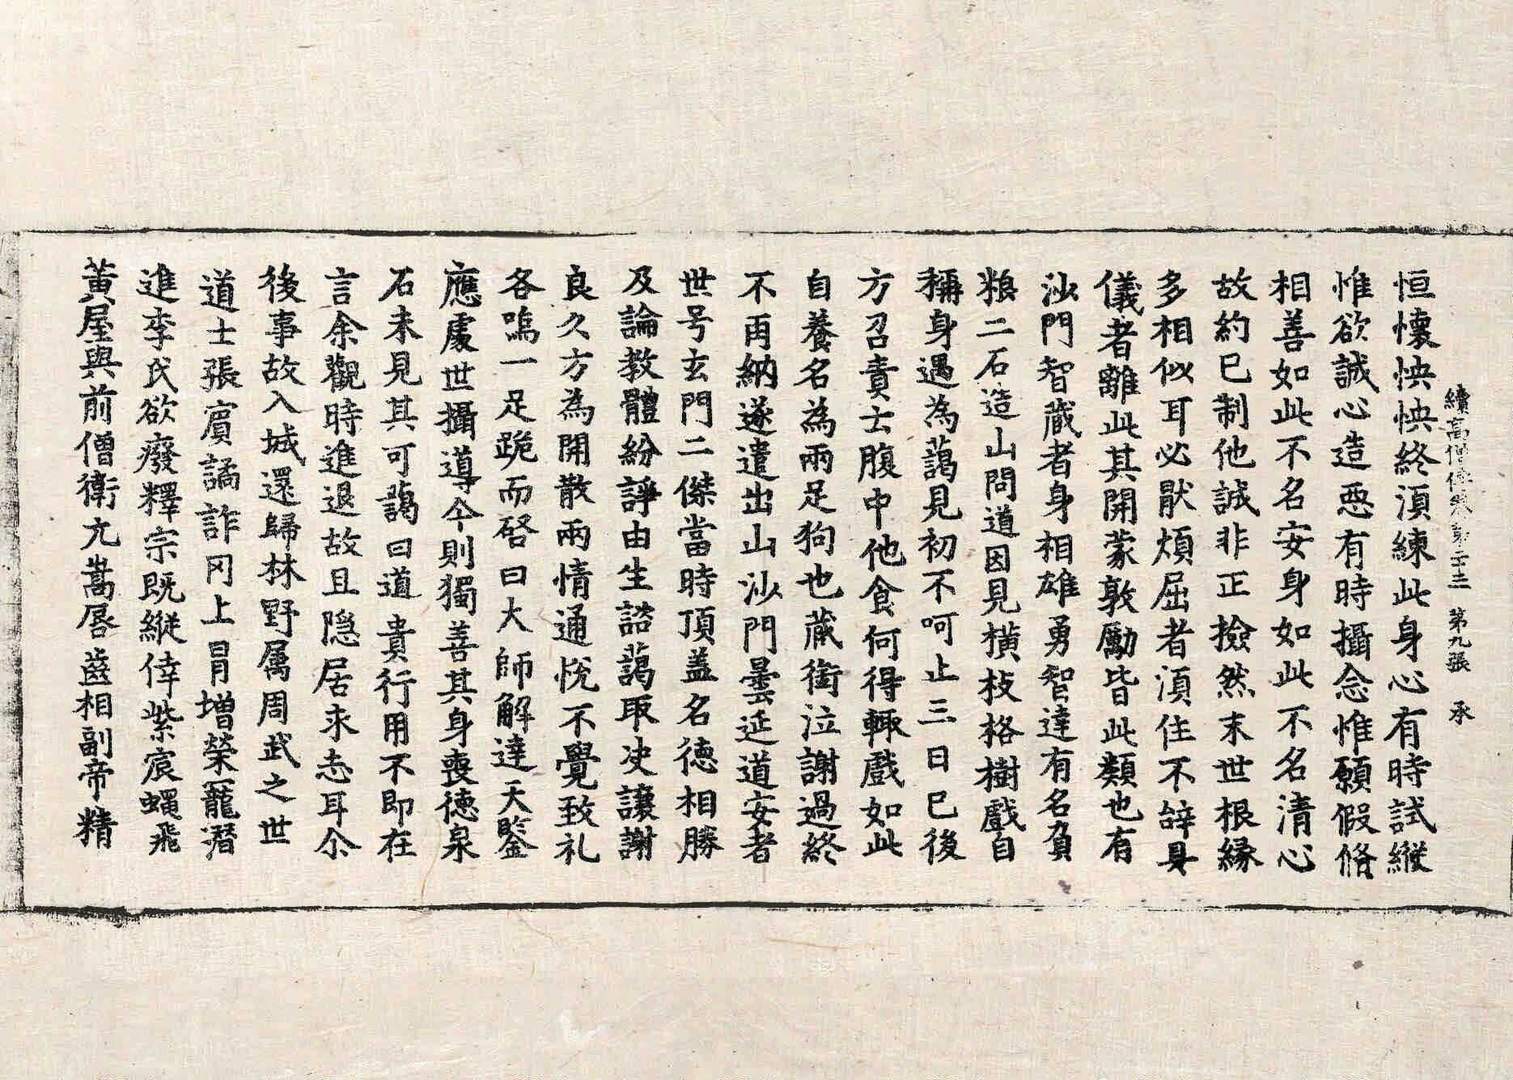 續高僧傳卷第二十三 第九張 承
恒懷怏怏終湏練此身心有時試縱
惟欲誠心造惡有時攝念惟願假脩
相善如此不名安身如此不名清心
故約已制他誠非正撿然末世根緣
多相似耳必厭煩屈者湏住不辝具
儀者離此其開蒙敦勵皆此類也有
沙門智藏者身相雄勇智達有名負
粮二石造山問道因見橫枝格樹戲自
稱身遇為藹見初不呵止三日已後
方召責士腹中他食何得輙戲如此
自養名為兩足狗也藏銜泣謝過終
不再納遂遣出山沙門曇延道安者
世号玄門二傑當時頂蓋名德相勝
及論教體紛諍由生諮藹取决讓謝
良久方為開散兩情通悅不覺致礼
各嗚一足跪而啓曰大師解達天鑒
應處世攝導今則獨善其身喪德泉
石未見其可藹曰道貴行用不即在
言余觀時進退故且隐居求志耳尒
後事故入城還歸林野属周武之世
道士張賔譎詐冈上冐增榮寵潛
進李氏欲廢釋宗既縱倖紫宸蝇飛
黃屋與前僧衛元嵩唇齒相副帝精